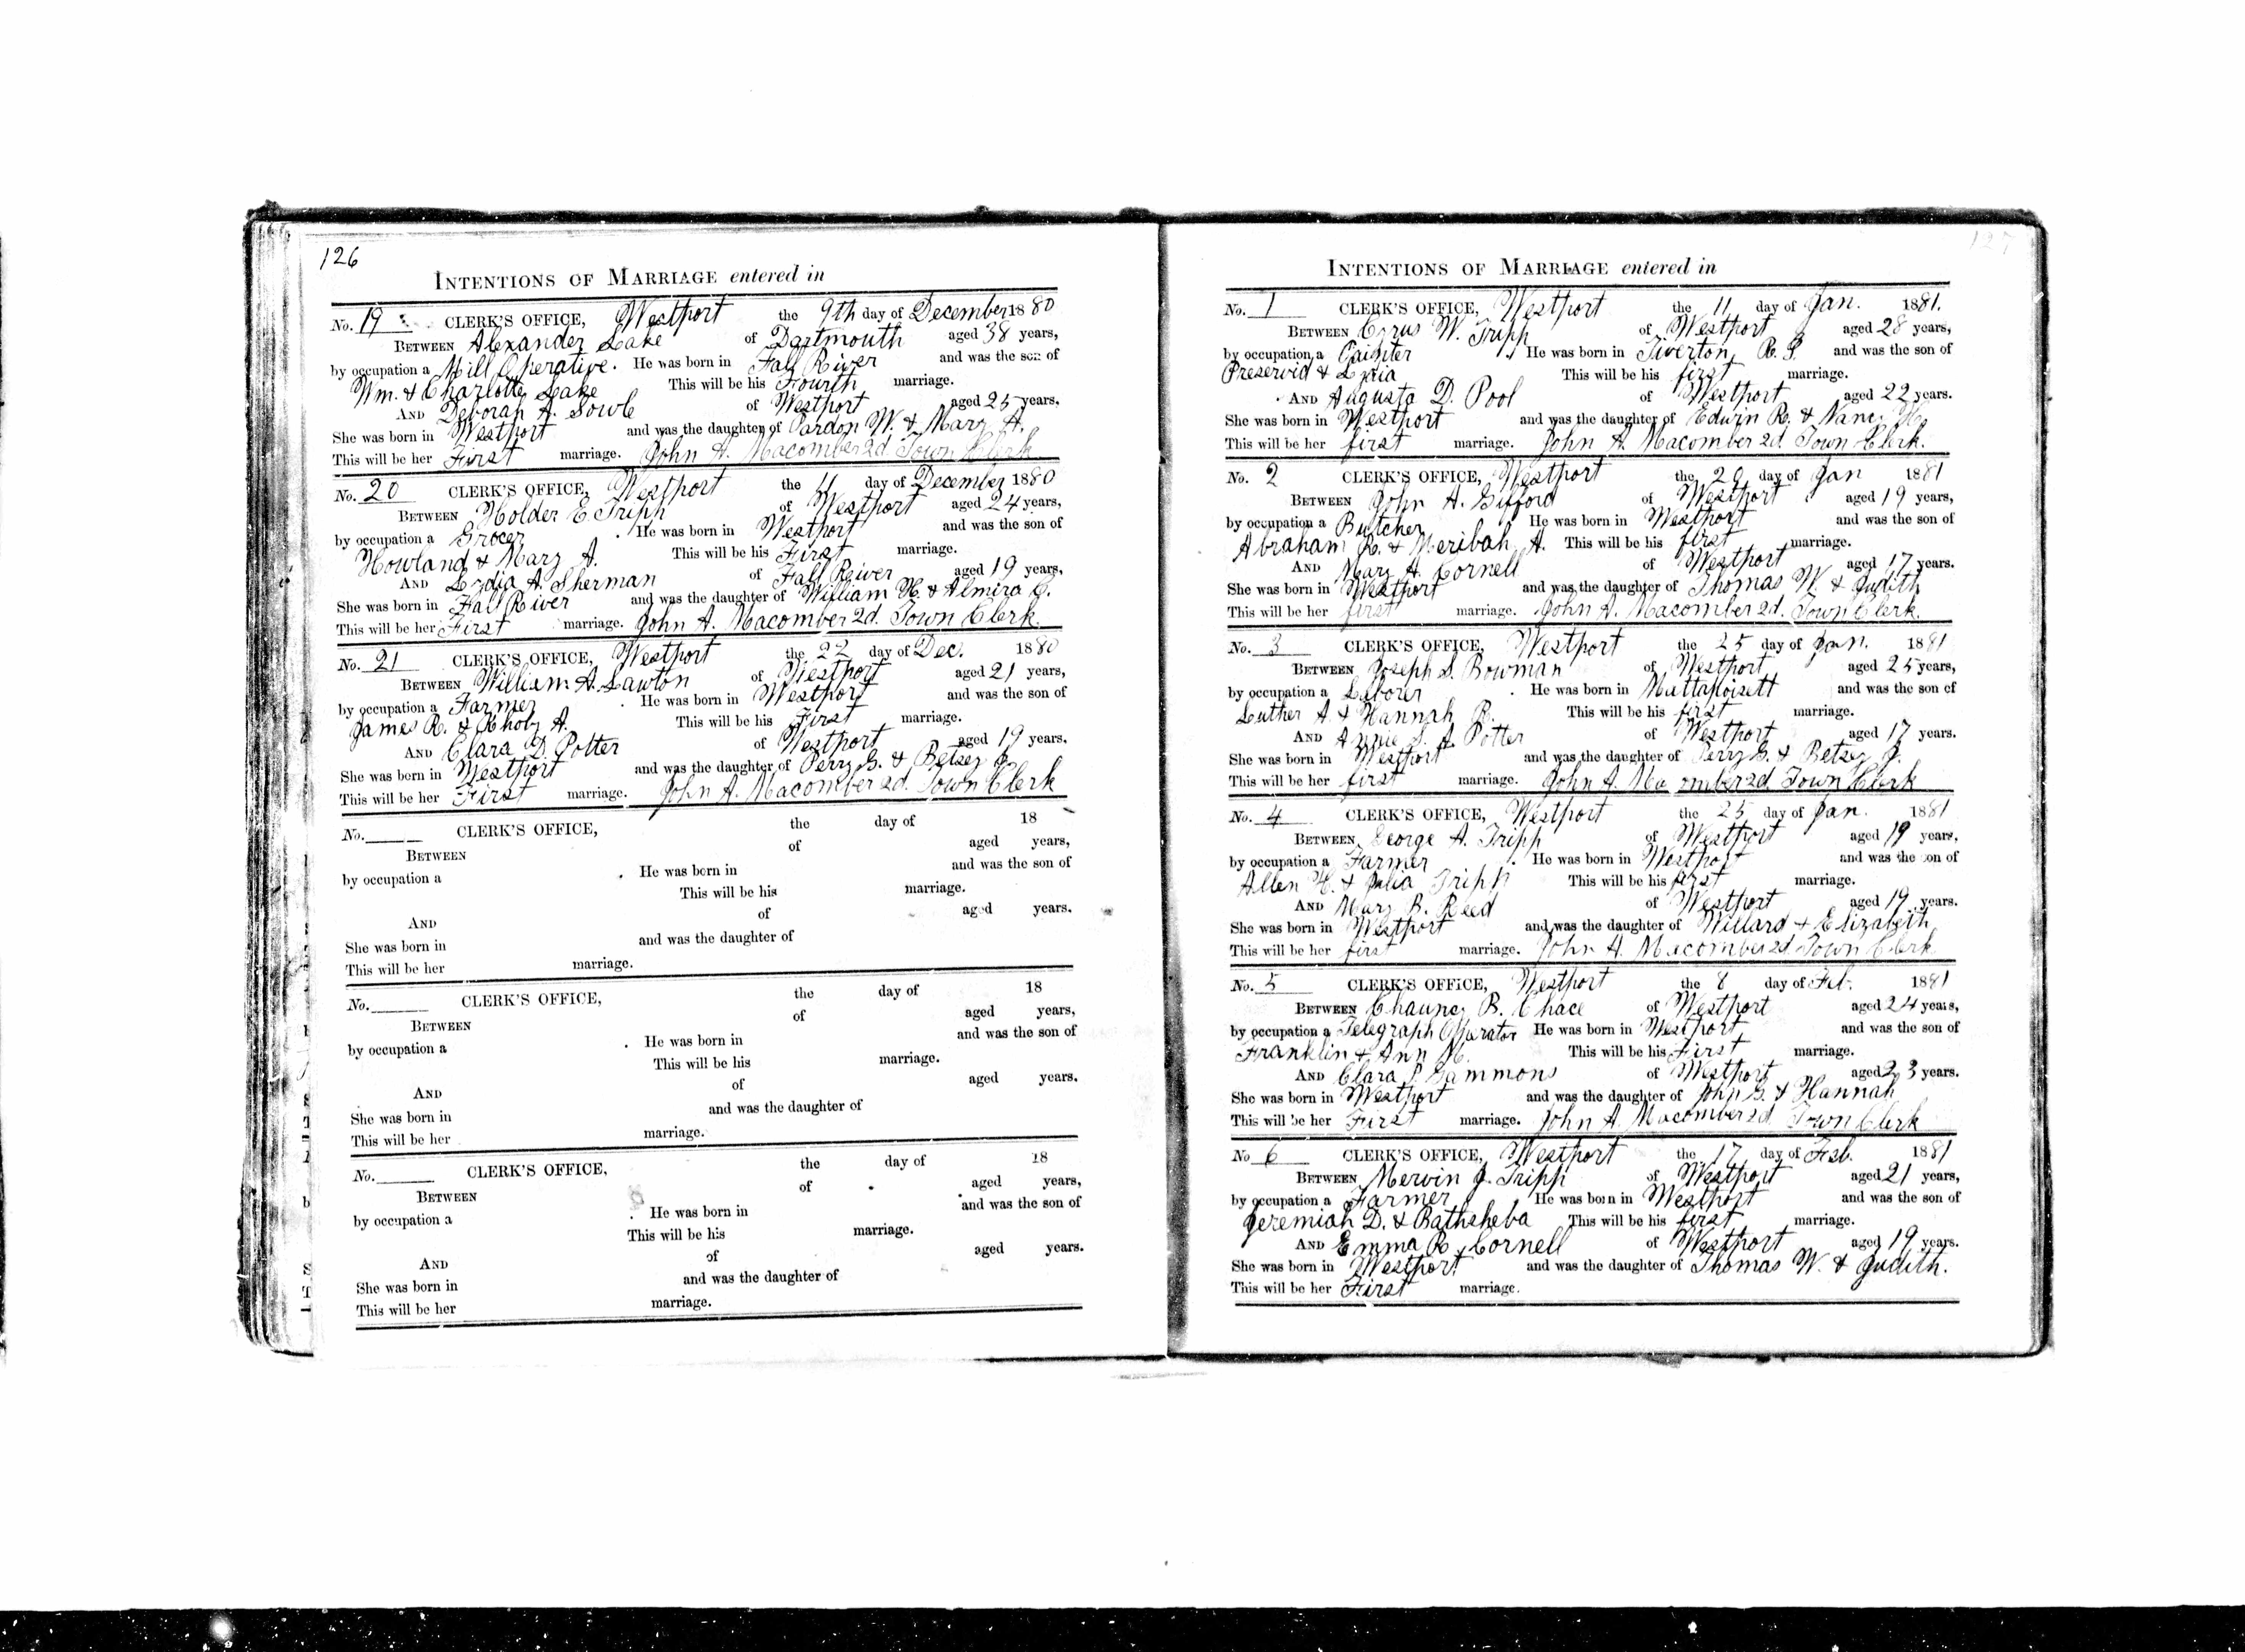 126
INTENTIONS OF MARRIAGE entered in
No. 19 CLERK'S OFFICE, Westport the 9th day of December 1880
BETWEEN Alexander Lake of Dartmouth aged 38 years,
by occupation a Mill Operative. He was born in Fall River and was the son of
Wm. & Charlotte Lake This will be his Fourth marriage.
AND Deborah A. Sowle of Westport aged 25 years.
She was born in Westport and was the daughter of Pardon W. & Mary A.
This will be her First marriage. John A. Macomber 2d. Town Clerk
No. 20 CLERK'S OFFICE, Westport the 11 day of December 1880
BETWEEN Holder E Tripp of Westport aged 24 years,
by occupation a Grocer. He was born in Westport and was the son of
Howland & Mary A. This will be his First marriage.
AND Lydia A. Sherman of Fall River aged 19 years,
She was born in Fall River and was the daughter of William H. & Almira
This will be her First marriage. John A. Macomber 2d. Town Clerk.
No. 21 CLERK'S OFFICE, Westport the 22 day of Dec. 1880
BETWEEN William A. Lawton of Westport aged 21 years,
by occupation a Farmer. He was born in Westport and was the son of
James R. & Rhoby A. This will be his First marriage.
AND Clara D. Potter of Westport aged 19 years.
She was born in Westport and was the daughter of Perry G. & Betsey J.
This will be her First marriage. John A. Macomber 2d. Town Clerk
No. CLERK'S OFFICE, the day of 18
BETWEEN of aged years,
by occupation a . He was born in and was the son of
This will be his marriage.
AND of aged years.
She was born in and was the daughter of
This will be her marriage.
No. CLERK'S OFFICE, the day of 18
BETWEEN of aged years,
by occupation a . He was born in and was the son of
This will be his marriage.
AND of aged years.
She was born in and was the daughter of
This will be her marriage.
No. CLERK'S OFFICE, the day of 18
BETWEEN of aged years,
by occupation a . He was born in and was the son of
This will be his marriage.
AND of aged years.
She was born in and was the daughter of
This will be her marriage.
127
INTENTIONS OF MARRIAGE entered in
No. 1 CLERK'S OFFICE, Westport the 11 day of Jan. 1881.
BETWEEN Cyrus W. Tripp of Westport aged 28 years,
by occupation a Painter. He was born in Tiverton, R. I. and was the son of
Preservid & Lydia This will be his first marriage.
AND Augusta D. Pool of Westport aged 22 years.
She was born in Westport and was the daughter of Edwin R. & Nancy
This will be her first marriage. John A. Macomber 2d. Town Clerk.
No. 2 CLERK'S OFFICE, Westport the day of Jan 1881
BETWEEN John A. Gifford of Westport aged 19 years,
by occupation a Butcher He was born in Westport and was the son of
Abraham R. & Meribah A. This will be his first marriage.
AND Mary A. Cornell of Westport aged 17 years.
She was born in Westport and was the daughter of Thomas W. & Judith
This will be her first marriage. John A. Macomber 2d. Town Clerk.
No. 3 CLERK'S OFFICE, Westport the 25 day of Jan. 1881
BETWEEN Joseph S. Bowman of Westport aged 25 years,
by occupation a Laborer . He was born in Mattapoisett and was the son of
Luther A. & Hannah R. This will be his first marriage.
AND Annie S. A. Potter of Westport aged 17 years.
She was born in Westport and was the daughter of Perry G. & Betsey J.
This will be her first marriage. John A. Macomber 2d. Town Clerk
No. 4 CLERK'S OFFICE, Westport the 25 day of Jan. 1881
BETWEEN George A. Tripp of Westport aged 19 years,
by occupation a Farmer . He was born in Westport and was the son of
Allen H. & Julia Tripp This will be his first marriage.
AND Mary B. Reed of Westport aged 19 years.
She was born in Westport and was the daughter of Willard & Elizabeth
This will be her first marriage. John A. Macomber 2d. Town Clerk
No. 5 CLERK'S OFFICE, Westport the 8 day of Feb. 1881
BETWEEN Chauncy B. Chace of Westport aged 24 years,
by occupation a Telegraph Operator He was born in Westport and was the son of
Franklin & Ann M. This will be his First marriage.
AND Clara Sammons of Westport aged 23 years.
She was born in Westport and was the daughter of John G. & Hannah
This will be her First marriage. John A. Macomber 2d Town Clerk
No 6 CLERK'S OFFICE, Westport the 17 day of Feb. 1881
BETWEEN Mervin J. Tripp of Westport aged 21 years,
by occupation a Farmer He was born in Westport and was the son of
Jeremiah D. & Bathsheba This will be his first marriage.
AND Emma R. Cornell of Westport aged 19 years.
She was born in Westport and was the daughter of Thomas W. & Judith.
This will be her First marriage.